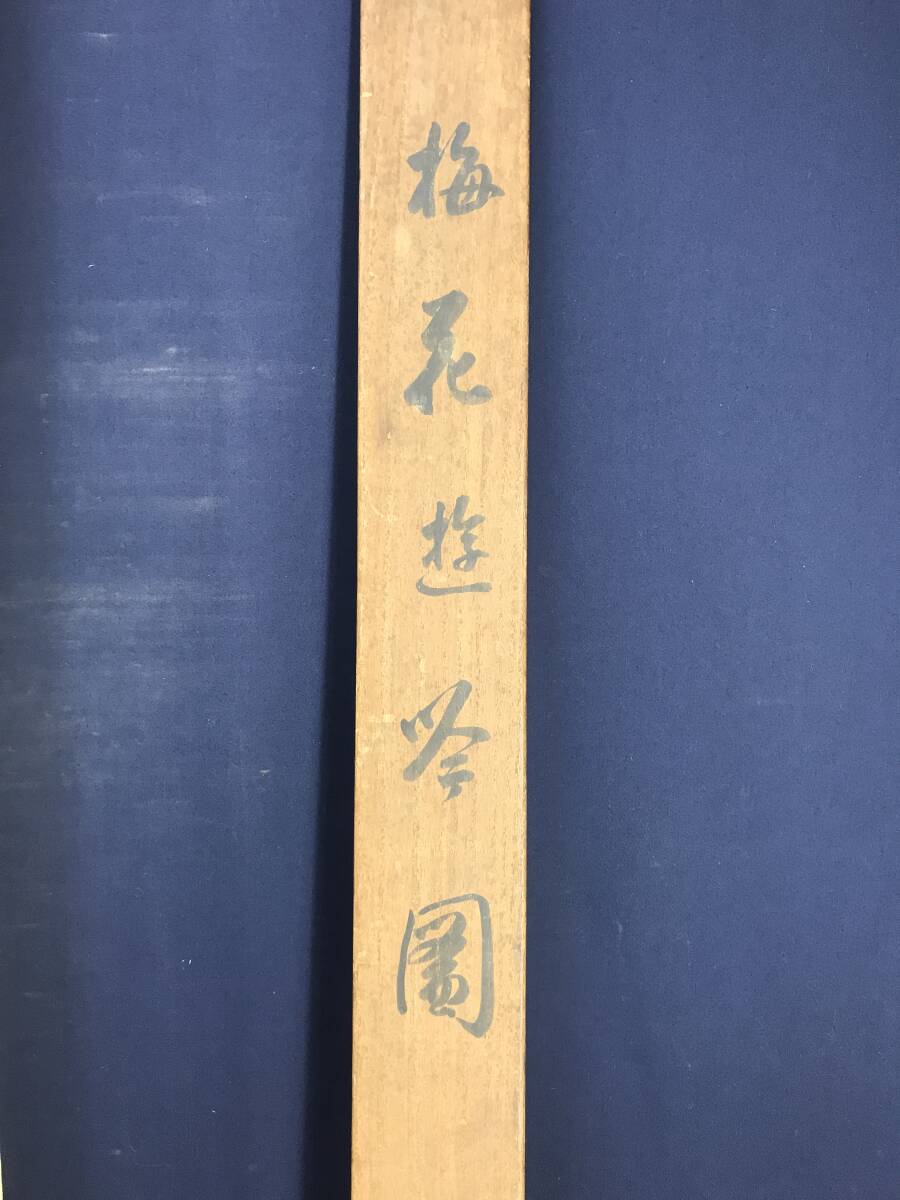 梅花遊吟圖